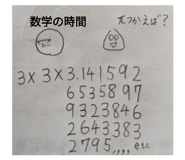 数学の時間
πつかえば?
3×3×3.141592
6535897
9323846
2643383
2795,,,, etc